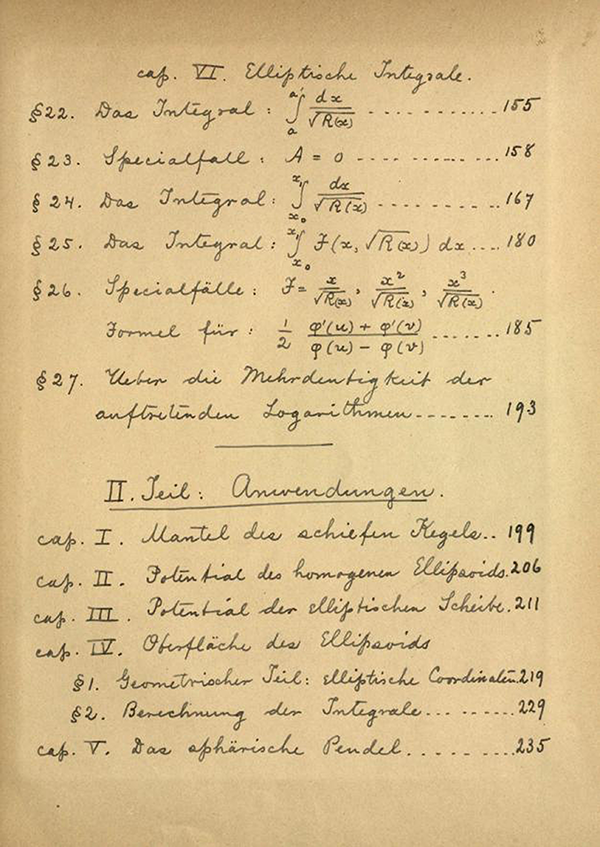 cap. VI. Elliptische Integrale.
§22. Das Integral: ∫ₐᵃ' dx/√R(x) ........... 155
§23. Specialfall: A = 0 ........... 158
§24. Das Integral: ∫ₓ₀ˣ dx/√R(x) ......... 167
§25. Das Integral: ∫ₓ₀ˣ F(x, √R(x)) dx .... 180
§26. Specialfälle: F = x/√R(x), x²/√R(x), x³/√R(x).
Formel für: 1/2 (φ'(u) + φ'(v))/(φ(u) - φ(v)) ...... 185
§27. Ueber die Mehrdeutigkeit der
auftretenden Logarithmen ....... 193
II. Teil: Anwendungen.
cap. I. Mantel des schiefen Kegels.. 199
cap. II. Potential des homogenen Ellipsoids. 206
cap. III. Potential der elliptischen Scheibe. 211
cap. IV. Oberfläche des Ellipsoids
§1. Geometrischer Teil: elliptische Coordinaten. 219
§2. Berechnung der Integrale......... 229
cap. V. Das sphärische Pendel......... 235